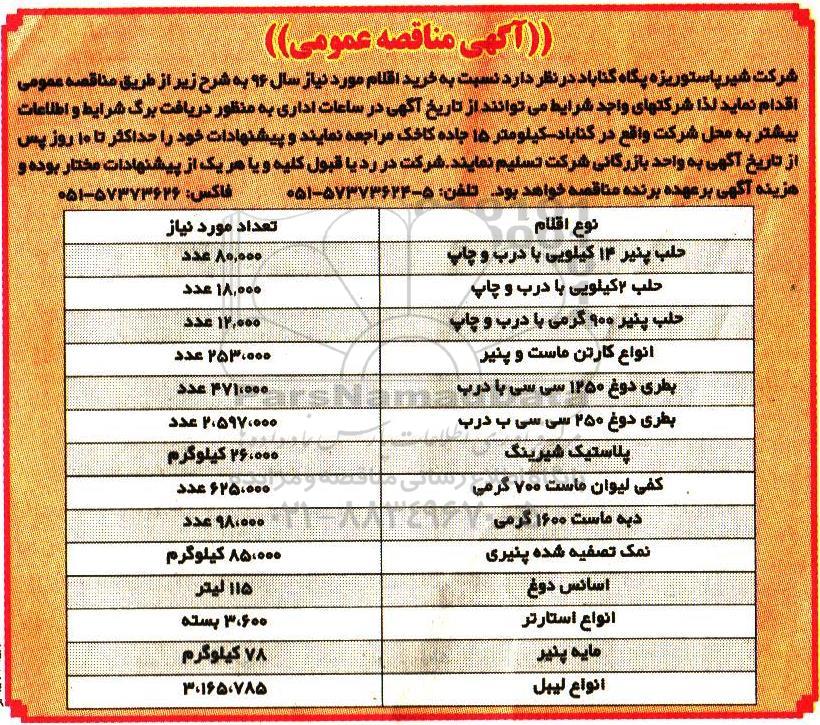 ((آگهی مناقصه عمومی))
شرکت شیرپاستوریزه پگاه گناباد در نظر دارد نسبت به خرید اقلام مورد نیاز سال ۹۶ به شرح زیر از طریق مناقصه عمومی
اقدام نماید لذا شرکتهای واجد شرایط می توانند از تاریخ آگهی در ساعات اداری به منظور دریافت برگ شرایط و اطلاعات
بیشتر به محل شرکت واقع در گناباد-کیلومتر ۱۵ جاده کاخک مراجعه نمایند و پیشنهادات خود را حداکثر تا ۱۰ روز پس
از تاریخ آگهی به واحد بازرگانی شرکت تسلیم نمایند.شرکت در رد یا قبول کلیه و یا هر یک از پیشنهادات مختار بوده و
هزینه آگهی بر عهده برنده مناقصه خواهد بود. تلفن: ۵-۵۷۳۷۳۶۲۴-۰۵۱ فاکس: ۵۷۳۷۳۶۲۶-۰۵۱
نوع اقلام تعداد مورد نیاز
حلب پنیر ۱۴ کیلویی با درب و چاپ ۸۰،۰۰۰ عدد
حلب ۲کیلویی با درب و چاپ ۱۸،۰۰۰ عدد
حلب پنیر ۹۰۰ گرمی با درب و چاپ ۱۲،۰۰۰ عدد
انواع کارتن ماست و پنیر ۲۵۳،۰۰۰ عدد
بطری دوغ ۱۲۵۰ سی سی با درب ۴۷۱،۰۰۰ عدد
بطری دوغ ۲۵۰ سی سی ب درب ۲،۵۹۷،۰۰۰ عدد
پلاستیک شیرینگ ۲۶،۰۰۰ کیلوگرم
کفی لیوان ماست ۷۰۰ گرمی ۶۲۵،۰۰۰ عدد
دبه ماست ۱۶۰۰ گرمی ۹۸،۰۰۰ عدد
نمک تصفیه شده پنیری ۸۵،۰۰۰ کیلوگرم
اسانس دوغ ۱۱۵ لیتر
انواع استارتر ۳،۶۰۰ بسته
مایه پنیر ۷۸ کیلوگرم
انواع لیبل ۳،۱۶۵،۷۸۵